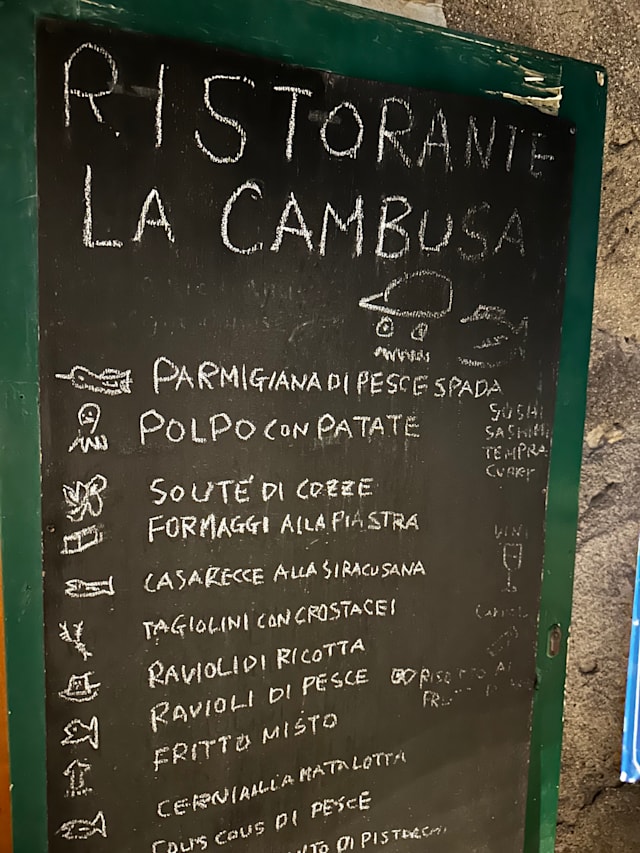 RISTORANTE
LA CAMBUSA
PARMIGIANA DI PESCE SPADA
POLPO CON PATATE
SUSHI
SASHIMI
TEMPRA
SOUTÉ DI COZZE
FORMAGGI ALLA PIASTRA
VINI
CASARECCE ALLA SIRACUSANA
TAGIOLINI CON CROSTACEI
RAVIOLI DI RICOTTA
RAVIOLI DI PESCE
FRITTO MISTO
CERNIA ALLA MATALOTTA
COUS COUS DI PESCE
DI